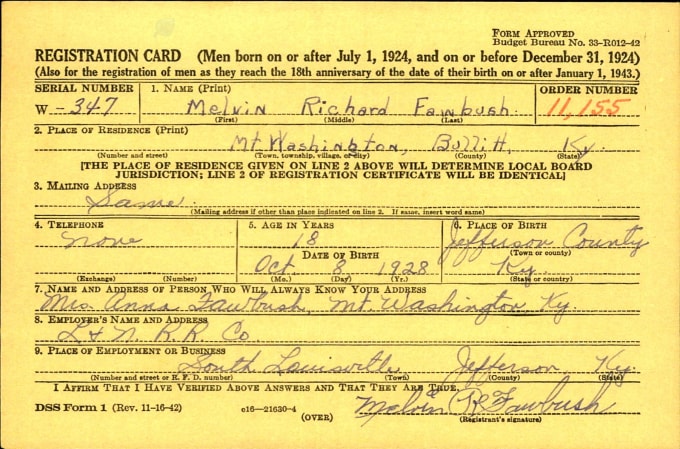 FORM APPROVED
Budget Bureau No. 33-R012-42
REGISTRATION CARD (Men born on or after July 1, 1924, and on or before December 31, 1924)
(Also for the registration of men as they reach the 18th anniversary of the date of their birth on or after January 1, 1943.)
SERIAL NUMBER 1. NAME (Print) ORDER NUMBER
W - 347 Melvin Richard Fawbush 11,155
(First) (Middle) (Last)
2. PLACE OF RESIDENCE (Print)
Mt Washington, Bullitt, Ky.
(Number and street) (Town, township, village, or city) (County) (State)
[THE PLACE OF RESIDENCE GIVEN ON LINE 2 ABOVE WILL DETERMINE LOCAL BOARD
JURISDICTION; LINE 2 OF REGISTRATION CERTIFICATE WILL BE IDENTICAL]
3. MAILING ADDRESS
Same
(Mailing address if other than place indicated on line 2. If same, insert word same)
4. TELEPHONE 5. AGE IN YEARS 6. PLACE OF BIRTH
None 18 Jefferson County
(Town or county)
DATE OF BIRTH
Oct. 8 1928 Ky.
(Exchange) (Number) (Mo.) (Day) (Yr.) (State or country)
7. NAME AND ADDRESS OF PERSON WHO WILL ALWAYS KNOW YOUR ADDRESS
Mrs. Anna Fawbush, Mt. Washington Ky.
8. EMPLOYER'S NAME AND ADDRESS
L & N. R.R. Co.
9. PLACE OF EMPLOYMENT OR BUSINESS
South Louisville Jefferson, Ky.
(Number and street or R. F. D. number) (Town) (County) (State)
I AFFIRM THAT I HAVE VERIFIED ABOVE ANSWERS AND THAT THEY ARE TRUE.
DSS Form 1 (Rev. 11-16-42) c16-21630-4 Melvin R Fawbush
(OVER) (Registrant's signature)